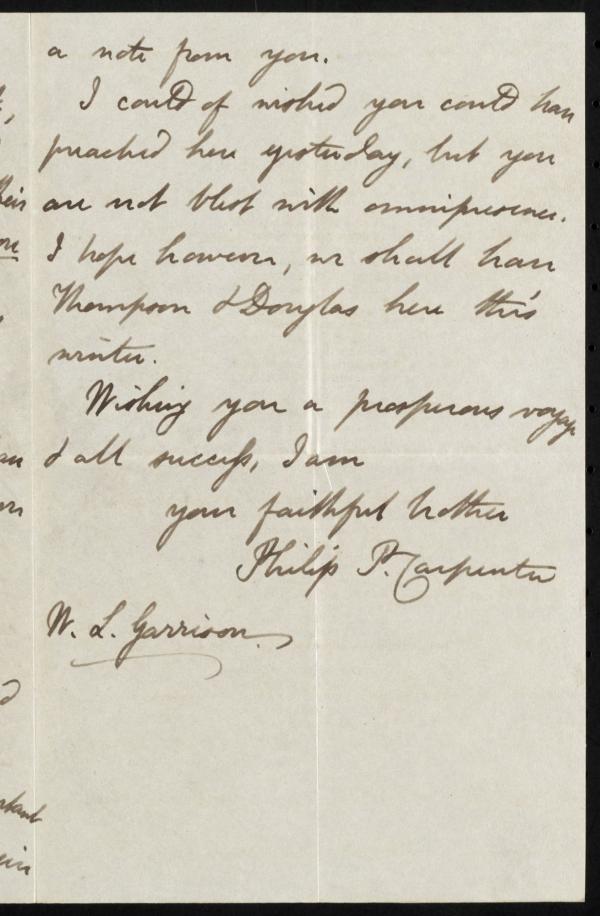 a note from you.
I could of wished you could have
preached here yesterday, but you
are not blest with omnipresence.
I hope however, we shall have
Thompson & Douglas here this
winter.
Wishing you a prosperous voyage
& all success, I am
your faithful brother
Philip P. Carpenter
W. L. Garrison.